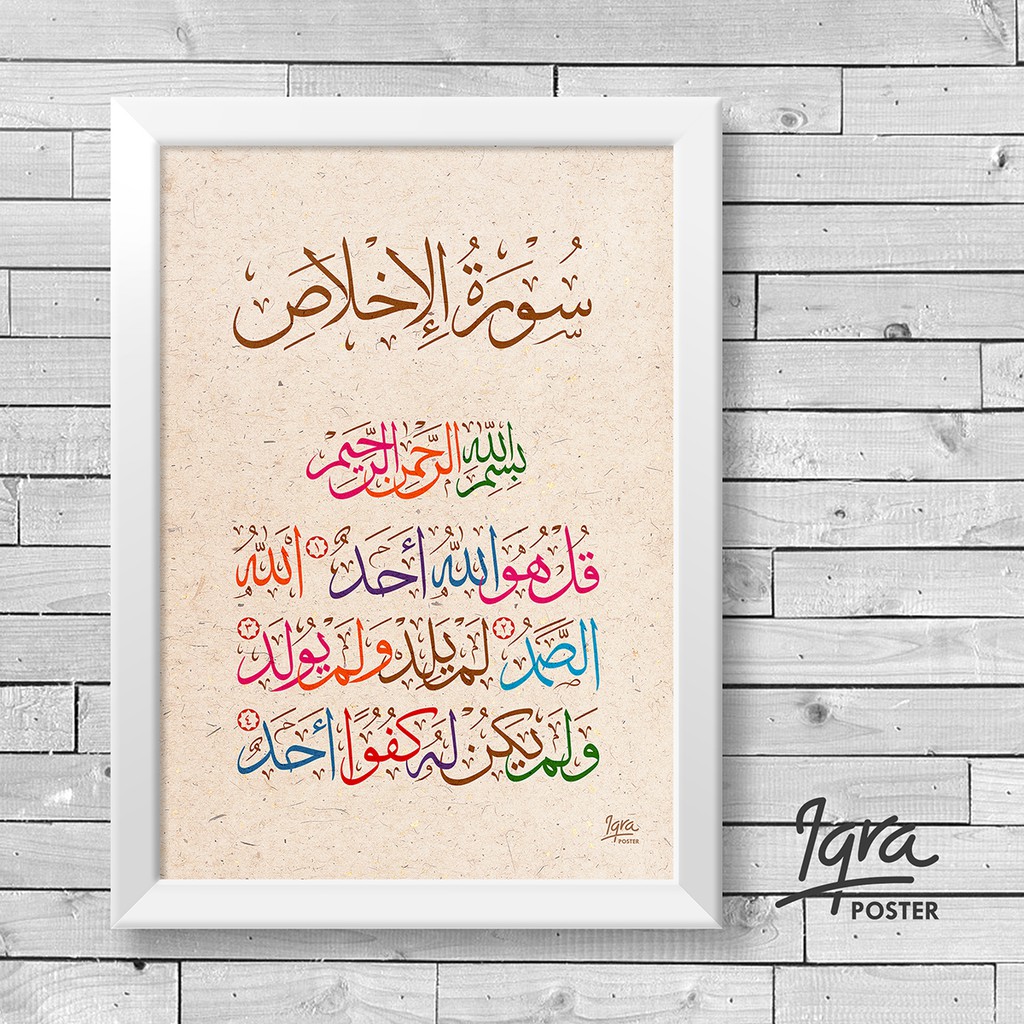 سُوْرَةُ الإِخْلَاصِ
بِسْمِ اللّٰهِ الرَّحْمٰنِ الرَّحِيْمِ
قُلْ هُوَ اللّٰهُ أَحَدٌ ١ اَللّٰهُ
الصَّمَدُ ٢ لَمْ يَلِدْ وَلَمْ يُولَدْ ٣
وَلَمْ يَكُنْ لَهُ كُفُوًا أَحَدٌ ٤
Iqra
POSTER
Iqra
POSTER